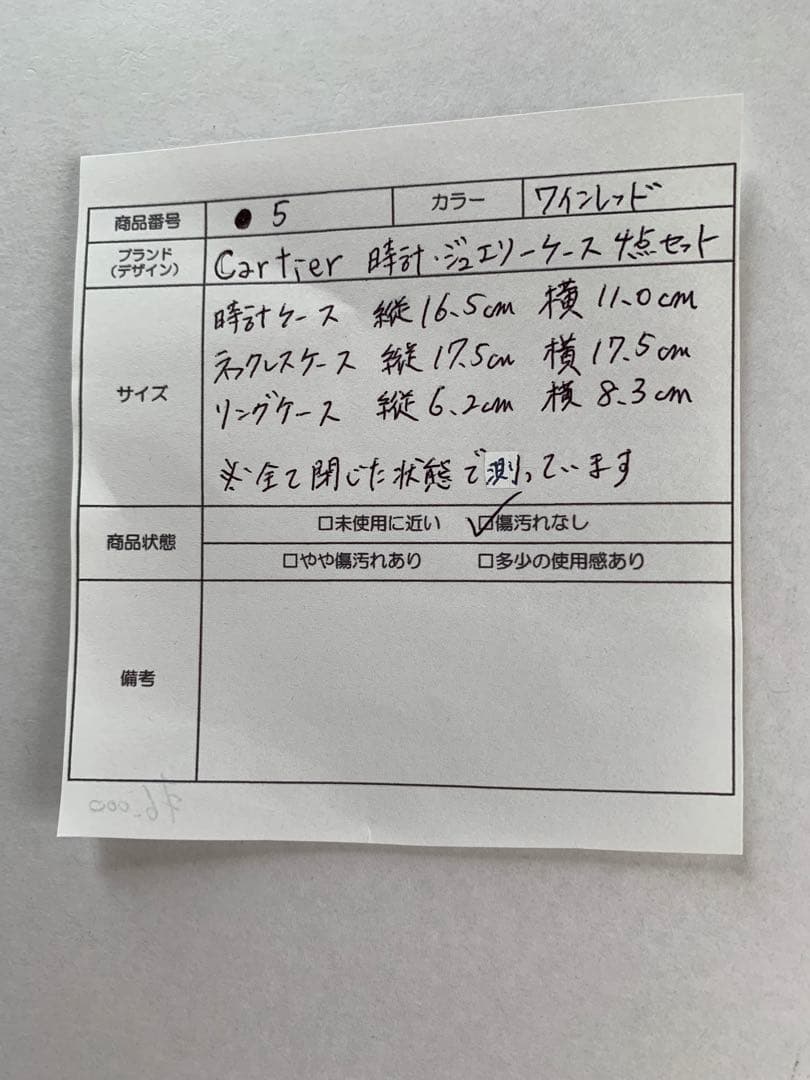 商品番号 ● 5 カラー ワインレッド
ブランド
(デザイン) Cartier 時計・ジュエリーケース 4点セット
サイズ
時計ケース 縦16.5cm 横11.0cm
ネックレスケース 縦17.5cm 横17.5cm
リングケース 縦6.2cm 横8.3cm
※全て閉じた状態で測っています
商品状態
□未使用に近い ☑傷汚れなし
□やや傷汚れあり □多少の使用感あり
備考
¥6,000